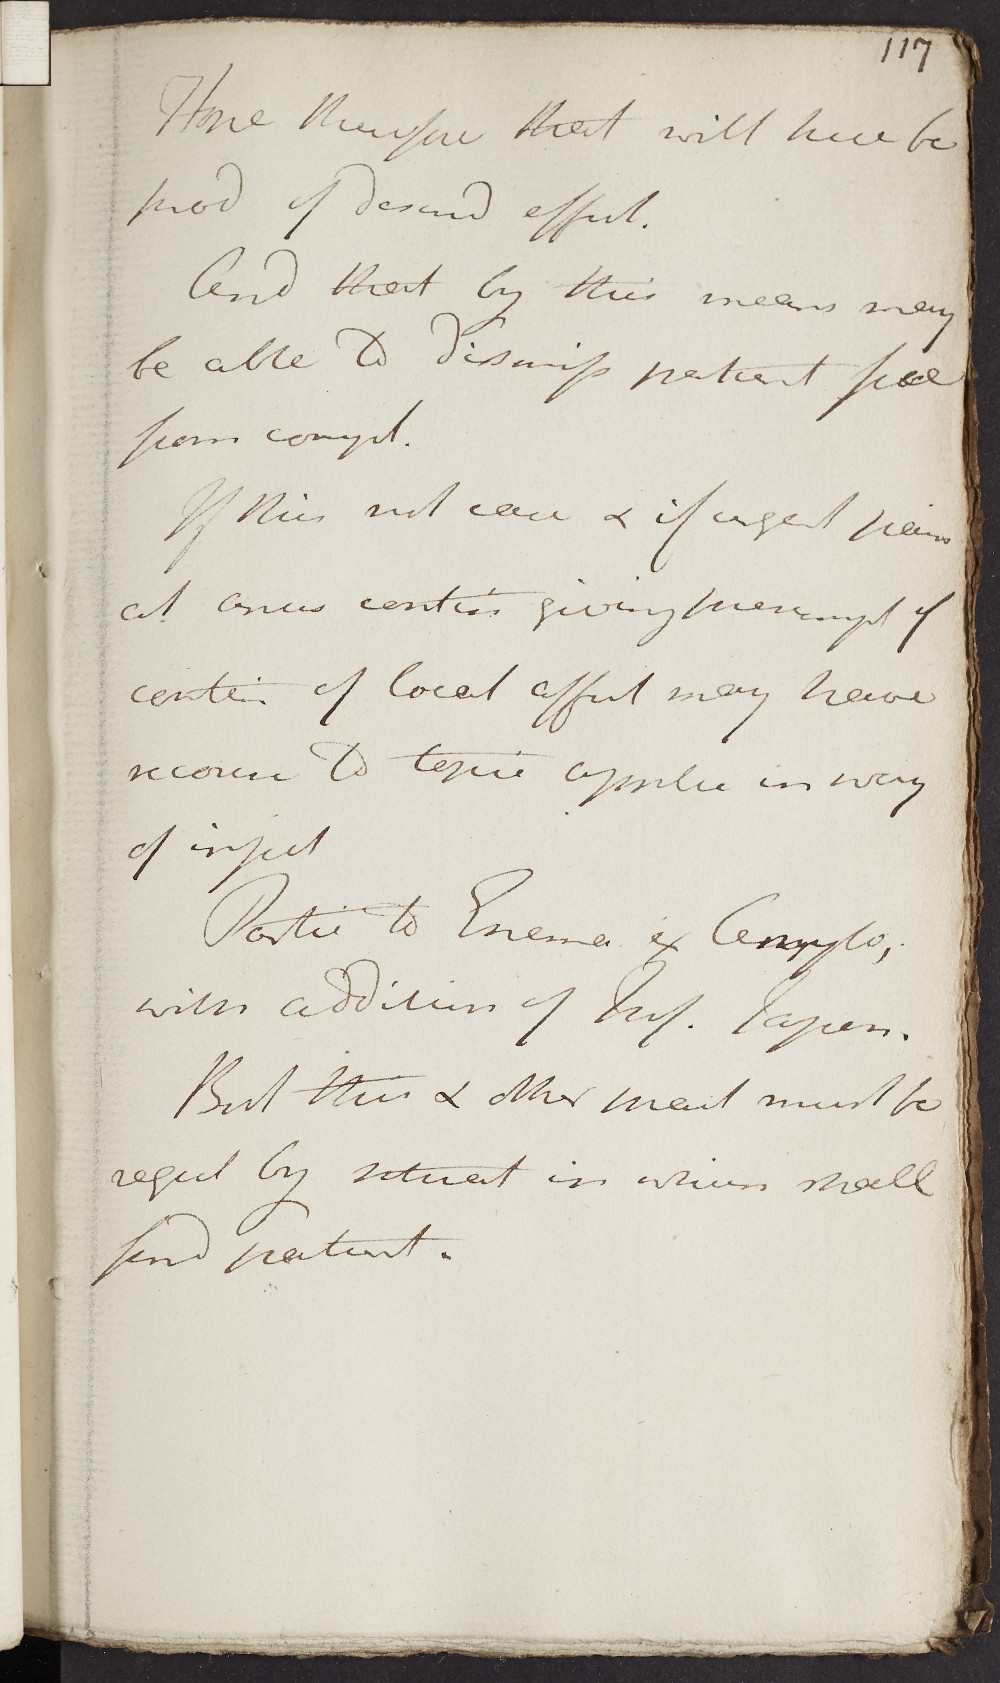 117
Hope therefore that will here be
prod of desired effect.
And that by this means may
be able to dismiss patient free
from compl.
If this not case & if urgent pain
at anus contin giving presumpt of
contin of local affect may have
recourse to topic applic in way
of inject
Partic to Enema ex Amylo,
with addition of Inf. Japon.
But this & other pract must be
regul by situat in which shall
find patient.